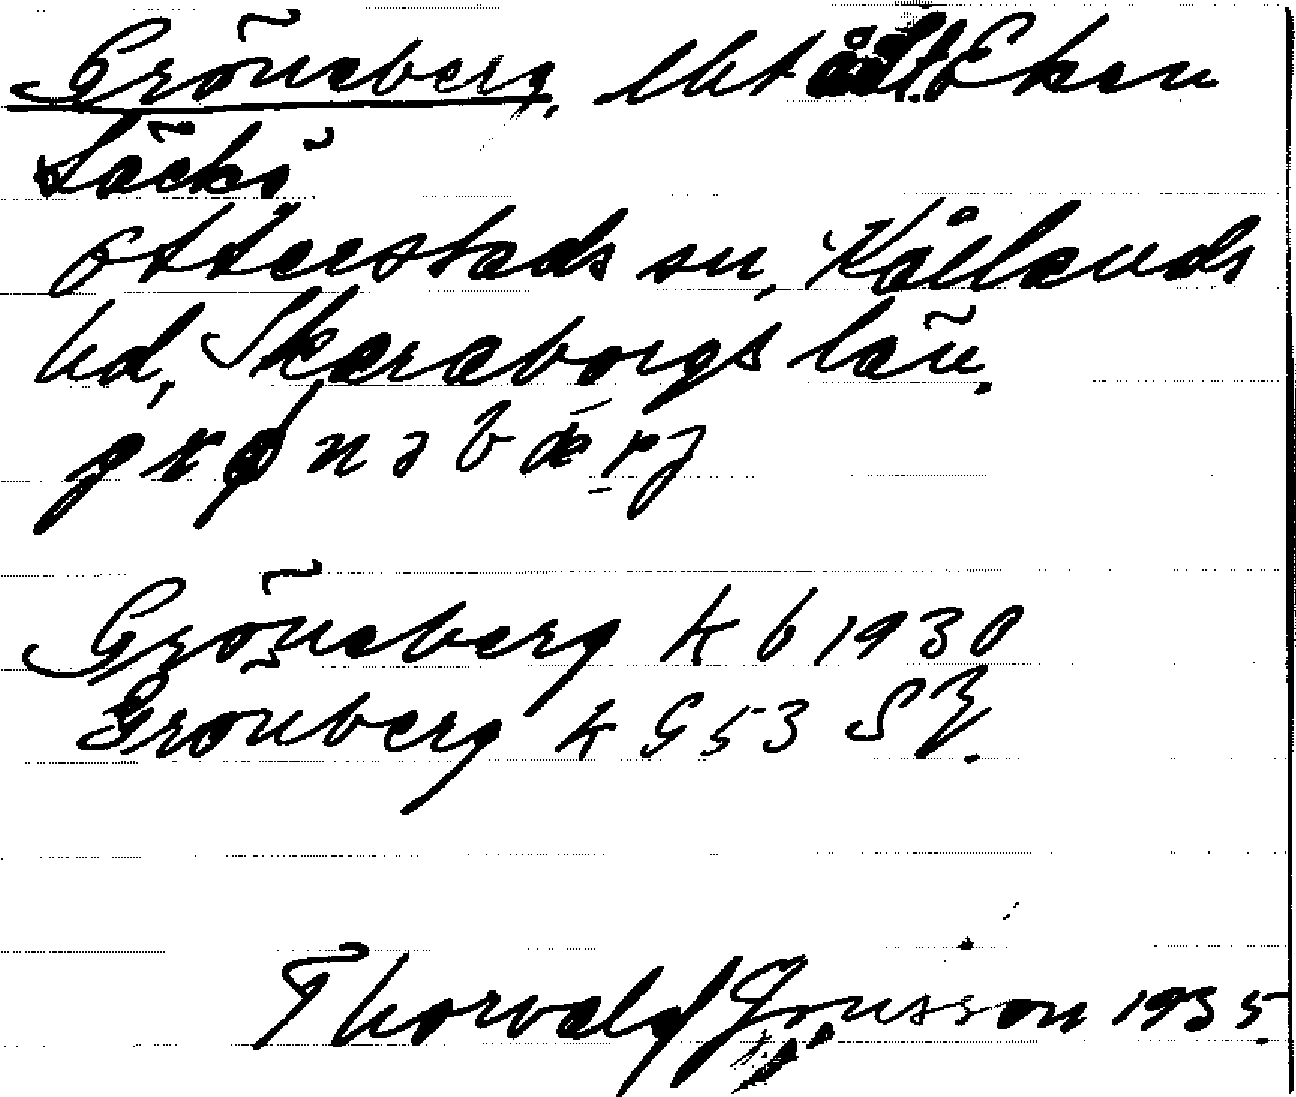 Gröneberg, lht åt Eken
Läckö
Otterstads sn, Kållands
hd, Skaraborgs län.
grønəbǽ̱rj
Gröneberg k b 1930
Grönberg k G 53 SÖ.
Thorvald Jonsson 1935